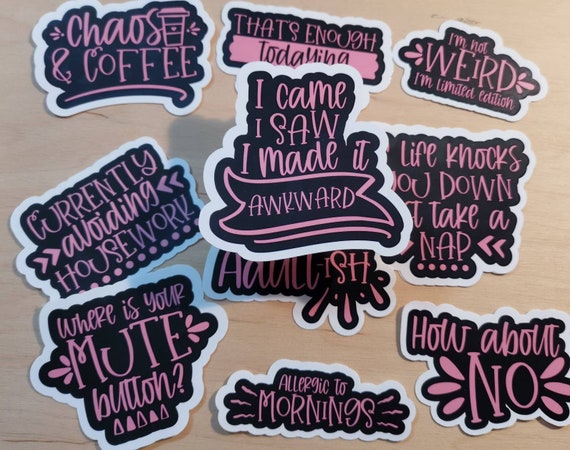 Chaos
& COFFEE
THAT'S ENOUGH
Todaying
I'm not
WEIRD
I'm limited edition
I came
I SAW
I made it
AWKWARD
CURRENTLY
avoiding
HOUSEWORK
Life knocks
OU DOWN
t take a
NAP
Adult-ish
Where is your
MUTE
button?
Allergic to
MORNINGS
How about
NO